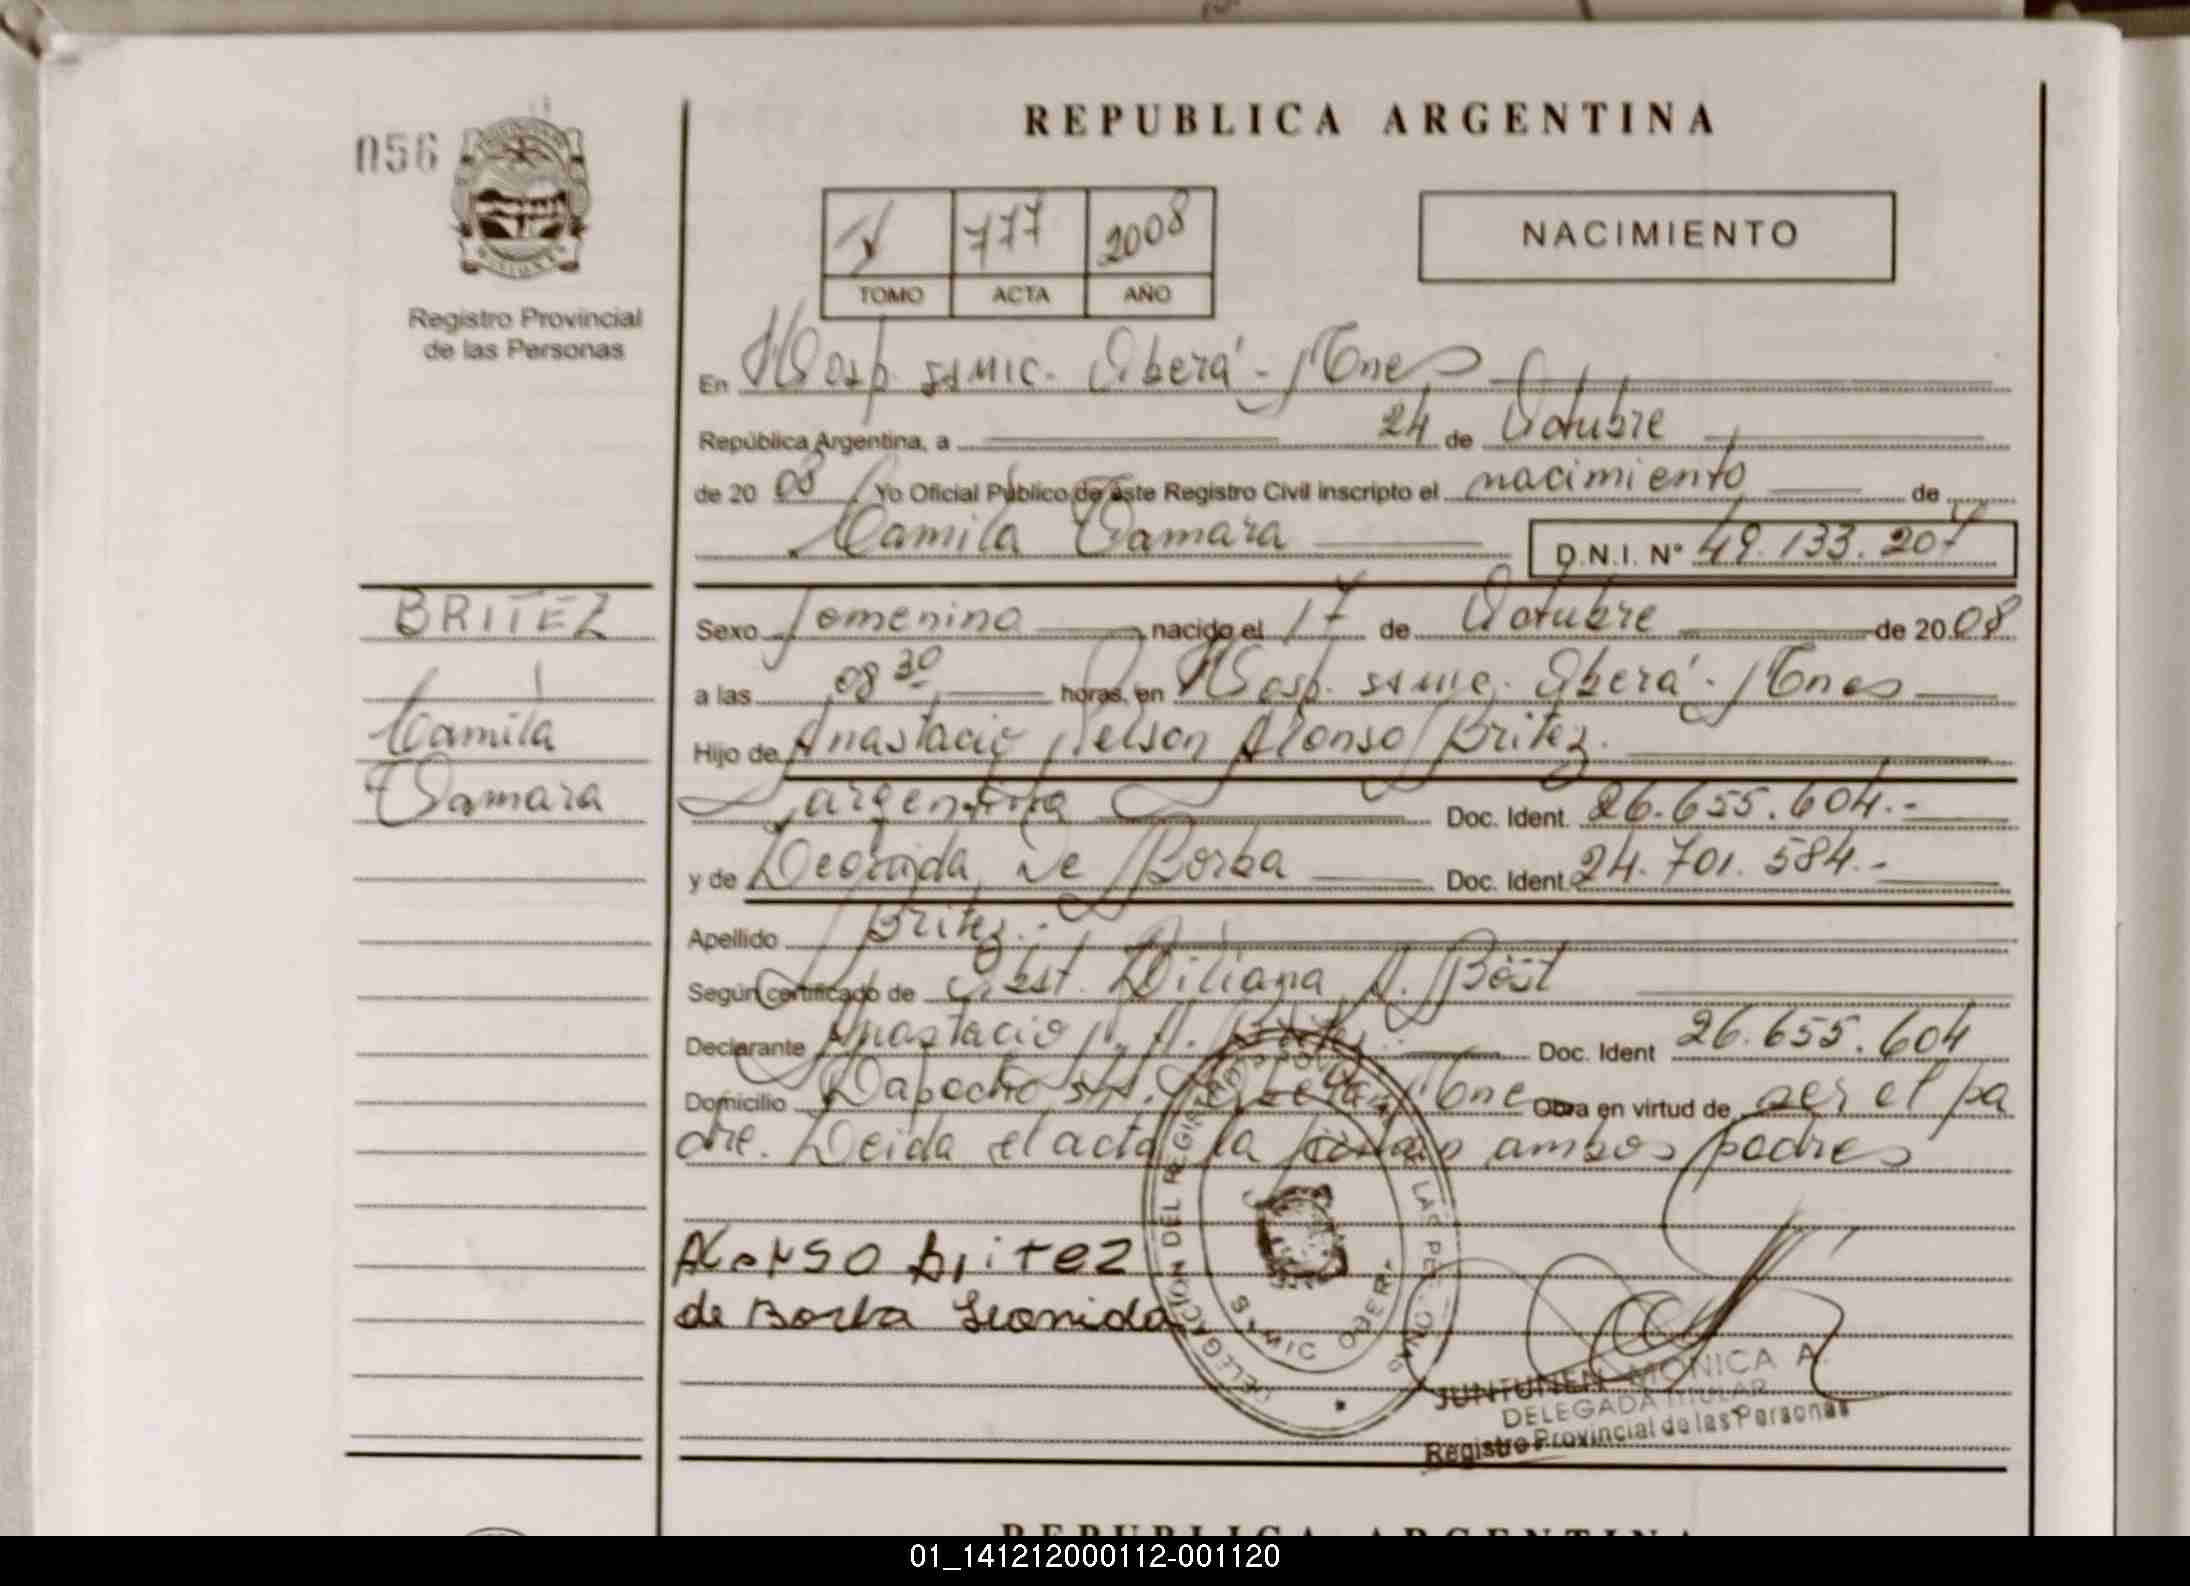 056
REPUBLICA ARGENTINA
777 2008
TOMO ACTA AÑO
NACIMIENTO
Registro Provincial
de las Personas
En Hosp. SAMIC. Oberá - Mnes
República Argentina, a 24 de Octubre
de 20 08 Yo Oficial Público de este Registro Civil inscripto el nacimiento de
Camila Tamara D.N.I. Nº 49.133.207
BRITEZ
Camila
Tamara
Sexo femenino nacido el 17 de Octubre de 20 08
a las 08 30 horas, en Hosp. SAMIC. Oberá - Mnes
Hijo de Anastacio Nelson Alonso Britez.
argentina Doc. Ident. 26.655.604.-
y de Leonida De Borba Doc. Ident. 24.701.584.-
Apellido Britez.-
Según certificado de Obst. Liliana A. Böst
Declarante Anastacio N. A. Doc. Ident 26.655.604
Domicilio s/N. Mne Obra en virtud de ser el pa
dre. Leida el acta la firman ambos padres
Alonso Britez
de Borba Leonida
DELEGACION DEL REGISTRO PROV. DE LAS PERSONAS
SAMIC OBERA
JUNTUNEN MONICA A.
DELEGADA TITULAR
Registro Provincial de las Personas
REPUBLICA ARGENTINA
01_141212000112-001120